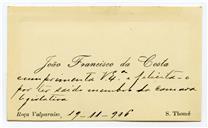 João Francisco da Costa
cumprimenta V.ª e felicita-o
por ter saido membro da camara
legislativa
Roça Valparaizo, 19-11-906 S. Thomé